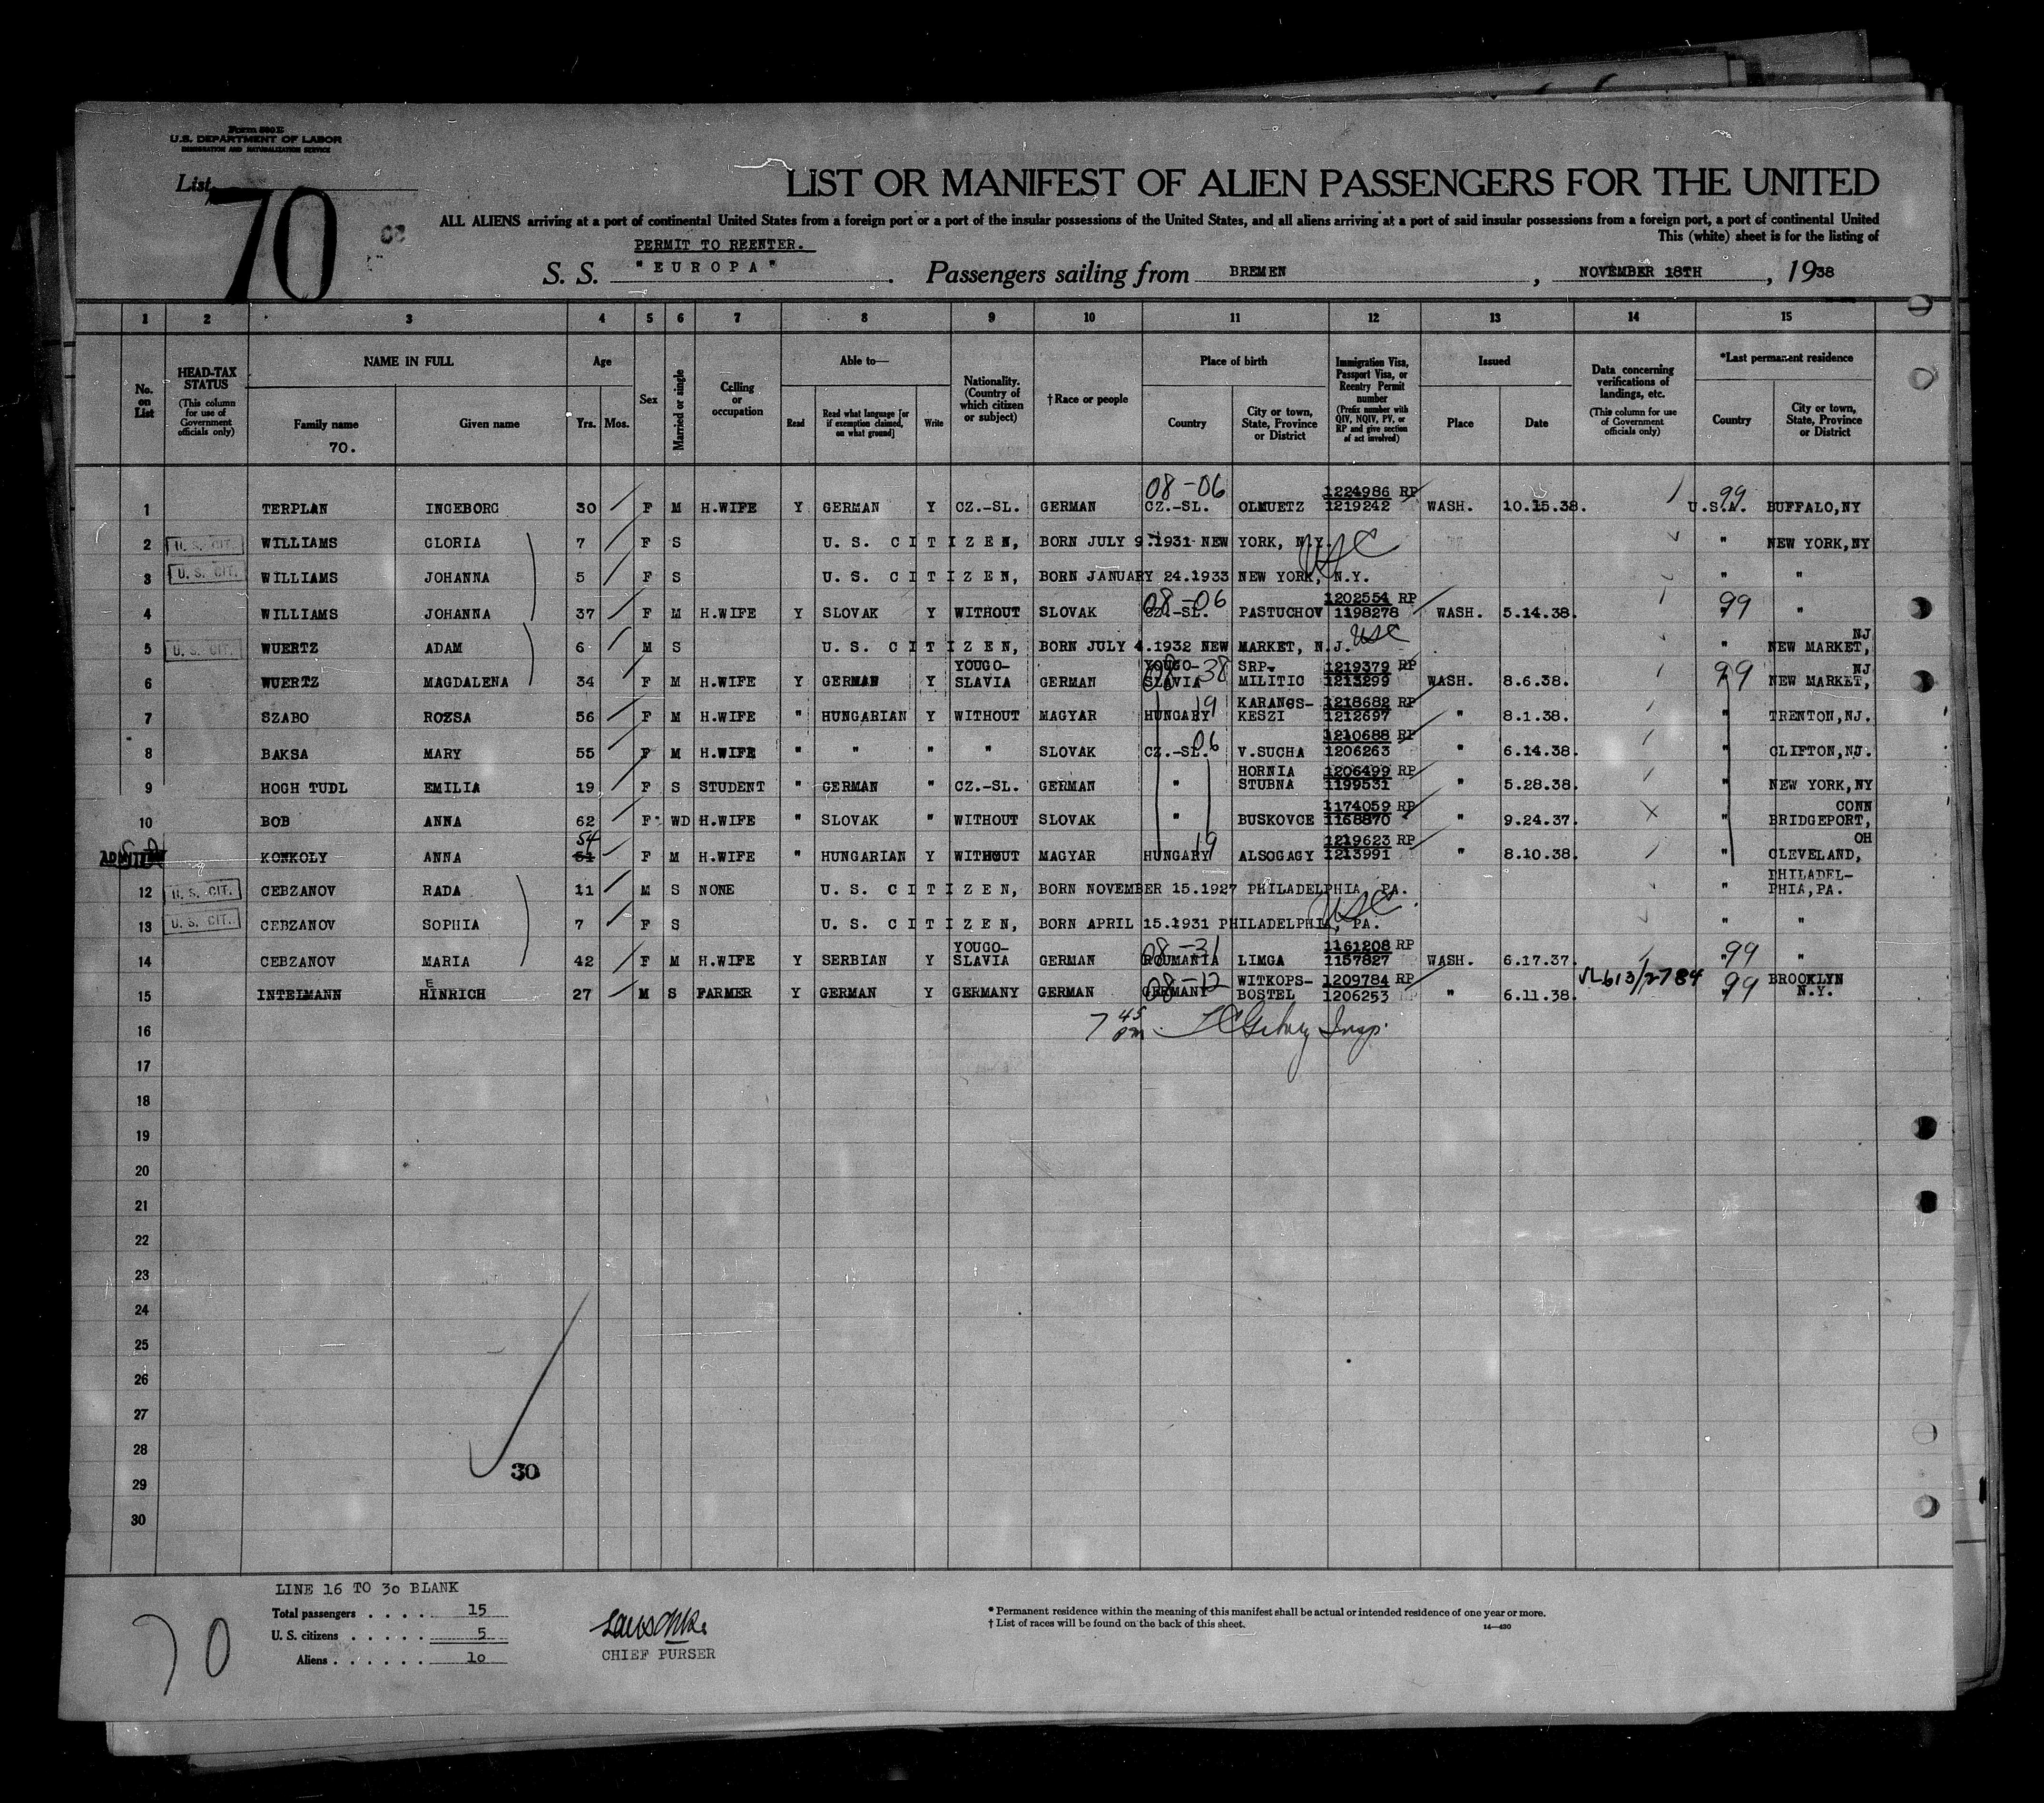 Form 500 E
U.S. DEPARTMENT OF LABOR
IMMIGRATION AND NATURALIZATION SERVICE
List 70
LIST OR MANIFEST OF ALIEN PASSENGERS FOR THE UNITED
ALL ALIENS arriving at a port of continental United States from a foreign port or a port of the insular possessions of the United States, and all aliens arriving at a port of said insular possessions from a foreign port, a port of continental United
This (white) sheet is for the listing of
PERMIT TO REENTER.
S. S. "EUROPA". Passengers sailing from BREMEN, NOVEMBER 18TH, 1938
1 2 3 4 5 6 7 8 9 10 11 12 13 14 15
No. on List
HEAD-TAX STATUS (This column for use of Government officials only)
NAME IN FULL
Family name 70.
Given name
Age Yrs. Mos.
Sex
Married or single
Calling or occupation
Able to— Read
Read what language [or if exemption claimed, on what ground]
Write
Nationality. (Country of which citizen or subject)
†Race or people
Place of birth Country
City or town, State, Province or District
Immigration Visa, Passport Visa, or Reentry Permit number (Prefix number with QIV, NQIV, PV, or RP and give section of act involved)
Issued Place Date
Data concerning verifications of landings, etc. (This column for use of Government officials only)
*Last permanent residence Country
City or town, State, Province or District
08-06 1224986 RP 99
1 TERPLAN INGEBORG 30 F M H.WIFE Y GERMAN Y CZ.-SL. GERMAN CZ.-SL. OLMUETZ 1219242 WASH. 10.15.38. U.S.A. BUFFALO,NY
2 U. S. CIT. WILLIAMS GLORIA 7 F S U. S. CITIZEN, BORN JULY 9.1931 NEW YORK, N.Y. USC " NEW YORK,NY
3 U. S. CIT. WILLIAMS JOHANNA 5 F S U. S. CITIZEN, BORN JANUARY 24.1933 NEW YORK, N.Y. " "
08-06 1202554 RP 99
4 WILLIAMS JOHANNA 37 F M H.WIFE Y SLOVAK Y WITHOUT SLOVAK CZ.-SL. PASTUCHOV 1198278 WASH. 5.14.38. " "
5 U. S. CIT. WUERTZ ADAM 6 M S U. S. CITIZEN, BORN JULY 4.1932 NEW MARKET, N.J. USC " NEW MARKET, NJ
YOUGO- YOUGO- 08-38 SRP. 1219379 RP 99 NJ
6 WUERTZ MAGDALENA 34 F M H.WIFE Y GERMAN Y SLAVIA GERMAN SLAVIA MILITIC 1213299 WASH. 8.6.38. " NEW MARKET,
19 KARANGS- 1218682 RP
7 SZABO ROZSA 56 F M H.WIFE " HUNGARIAN Y WITHOUT MAGYAR HUNGARY KESZI 1212697 " 8.1.38. " TRENTON,NJ.
06 1210688 RP
8 BAKSA MARY 55 F M H.WIFE " " " " SLOVAK CZ.-SL. V.SUCHA 1206263 " 6.14.38. " CLIFTON,NJ.
HORNIA 1206499 RP
9 HOGH TUDL EMILIA 19 F S STUDENT " GERMAN " CZ.-SL. GERMAN " STUBNA 1199531 " 5.28.38. " NEW YORK,NY
1174059 RP CONN
10 BOB ANNA 62 F WD H.WIFE " SLOVAK " WITHOUT SLOVAK " BUSKOVCE 1168870 " 9.24.37. " BRIDGEPORT,
54 19 1219623 RP OH
ADMITTED KONKOLY ANNA 51 F M H.WIFE " HUNGARIAN Y WITHOUT MAGYAR HUNGARY ALSOGAGY 1213991 " 8.10.38. " CLEVELAND,
12 U. S. CIT. CEBZANOV RADA 11 M S NONE U. S. CITIZEN, BORN NOVEMBER 15.1927 PHILADELPHIA, PA. " PHILADEL-PHIA,PA.
13 U. S. CIT. CEBZANOV SOPHIA 7 F S U. S. CITIZEN, BORN APRIL 15.1931 PHILADELPHIA, PA. USC " "
YOUGO- 08-31 1161208 RP 99
14 CEBZANOV MARIA 42 F M H.WIFE Y SERBIAN Y SLAVIA GERMAN ROUMANIA LIMGA 1157827 WASH. 6.17.37. " "
E 08-12 WITKOPS- 1209784 RP VL613/2784 99 BROOKLYN
15 INTELMANN HINRICH 27 M S FARMER Y GERMAN Y GERMANY GERMAN GERMANY BOSTEL 1206253 " 6.11.38. " N.Y.
16 7 45 pm Insp.
17
18
19
20
21
22
23
24
25
26
27
28
29 30
30
LINE 16 TO 30 BLANK
Total passengers .... 15
U. S. citizens ..... 5
Aliens ...... 10
70
CHIEF PURSER
* Permanent residence within the meaning of this manifest shall be actual or intended residence of one year or more.
† List of races will be found on the back of this sheet.
14—430